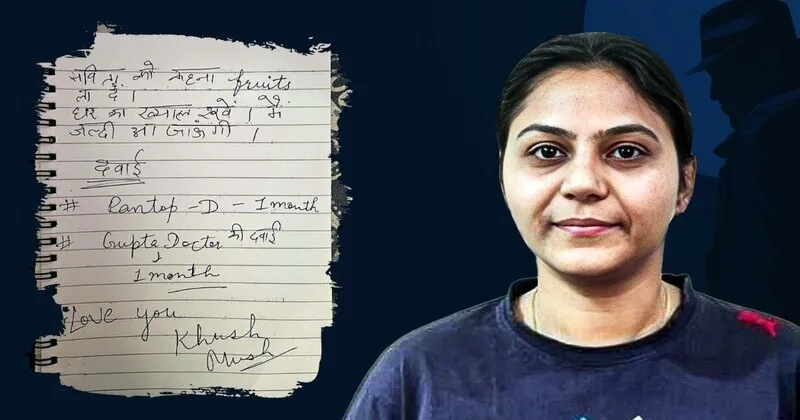 सविता को कहना fruits
ला दे ।
घर का ख्याल रखें । मैं
जल्दी आ जाऊंगी ।
दवाई
# Pantop - D - 1 month
# Gupta Doctor की दवाई
1 month
Love you
Khush
Mush